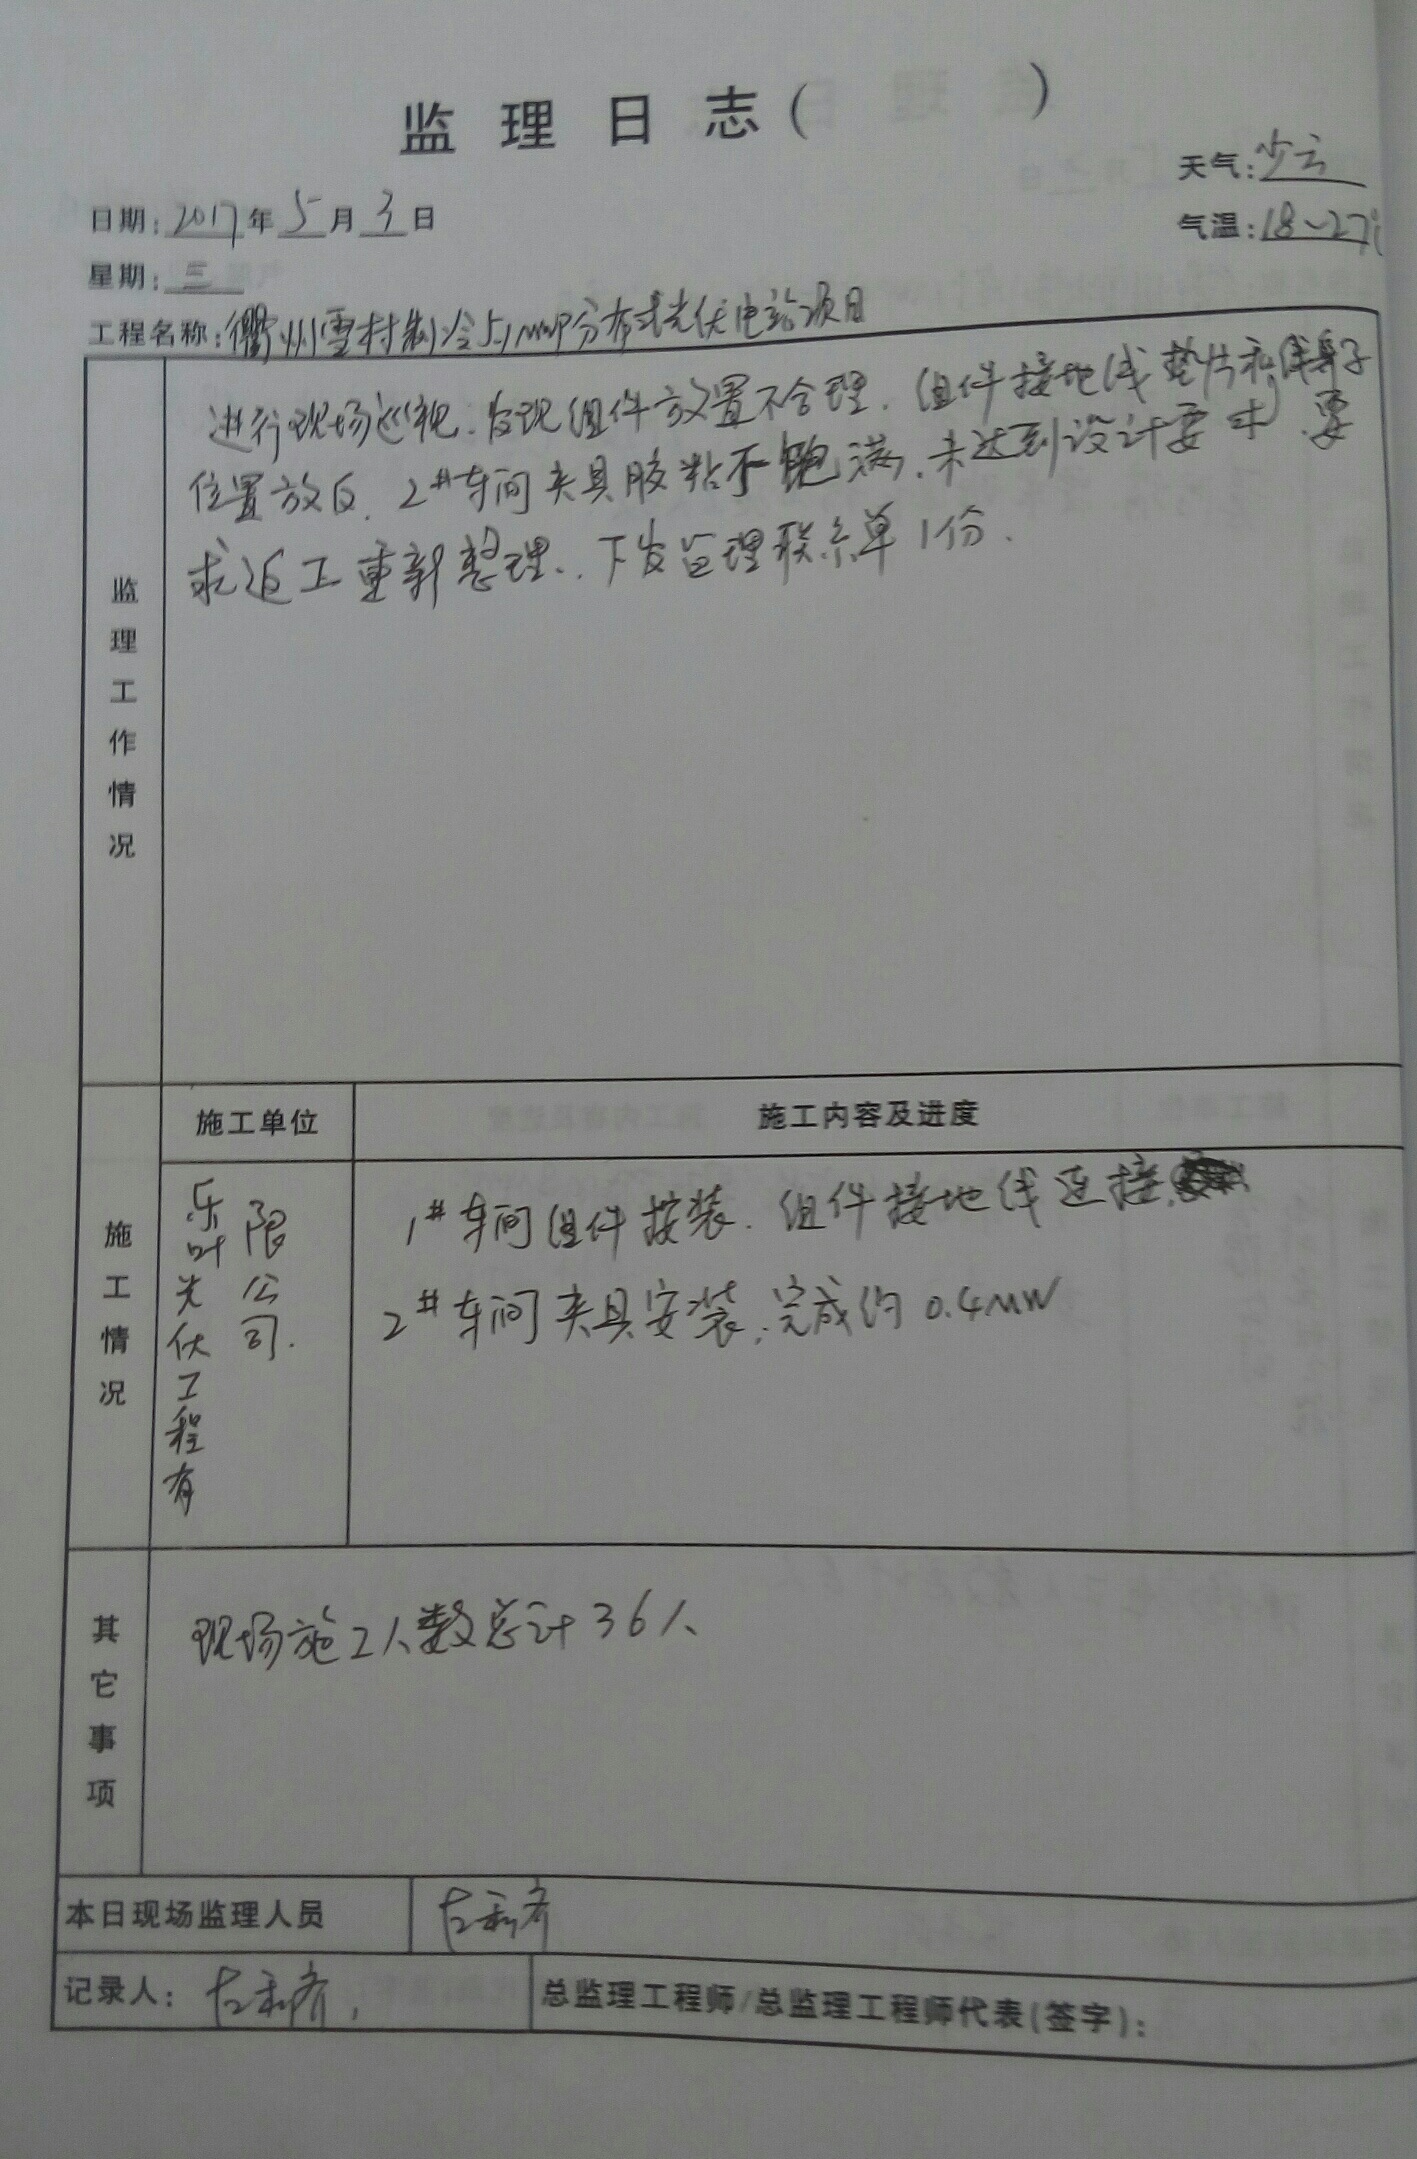 监理日志(　　)
天气:少云
日期:2017年5月3日
气温:18~27℃
星期:三
工程名称:衢州雪村制冷5.1MWP分布式光伏电站项目
监理工作情况
进行现场巡视.发现组件放置不合理.组件接地线垫片和线鼻子
位置放反.2#车间夹具胶粘不饱满.未达到设计要求.要
求返工重新整理.下发监理联系单1份.
施工单位
施工内容及进度
施工情况
乐叶光伏工程有
限公司.
1#车间组件按装.组件接地线连接.
2#车间夹具安装,完成约0.4MW
其它事项
现场施工人数总计36人
本日现场监理人员
记录人:
总监理工程师/总监理工程师代表(签字):